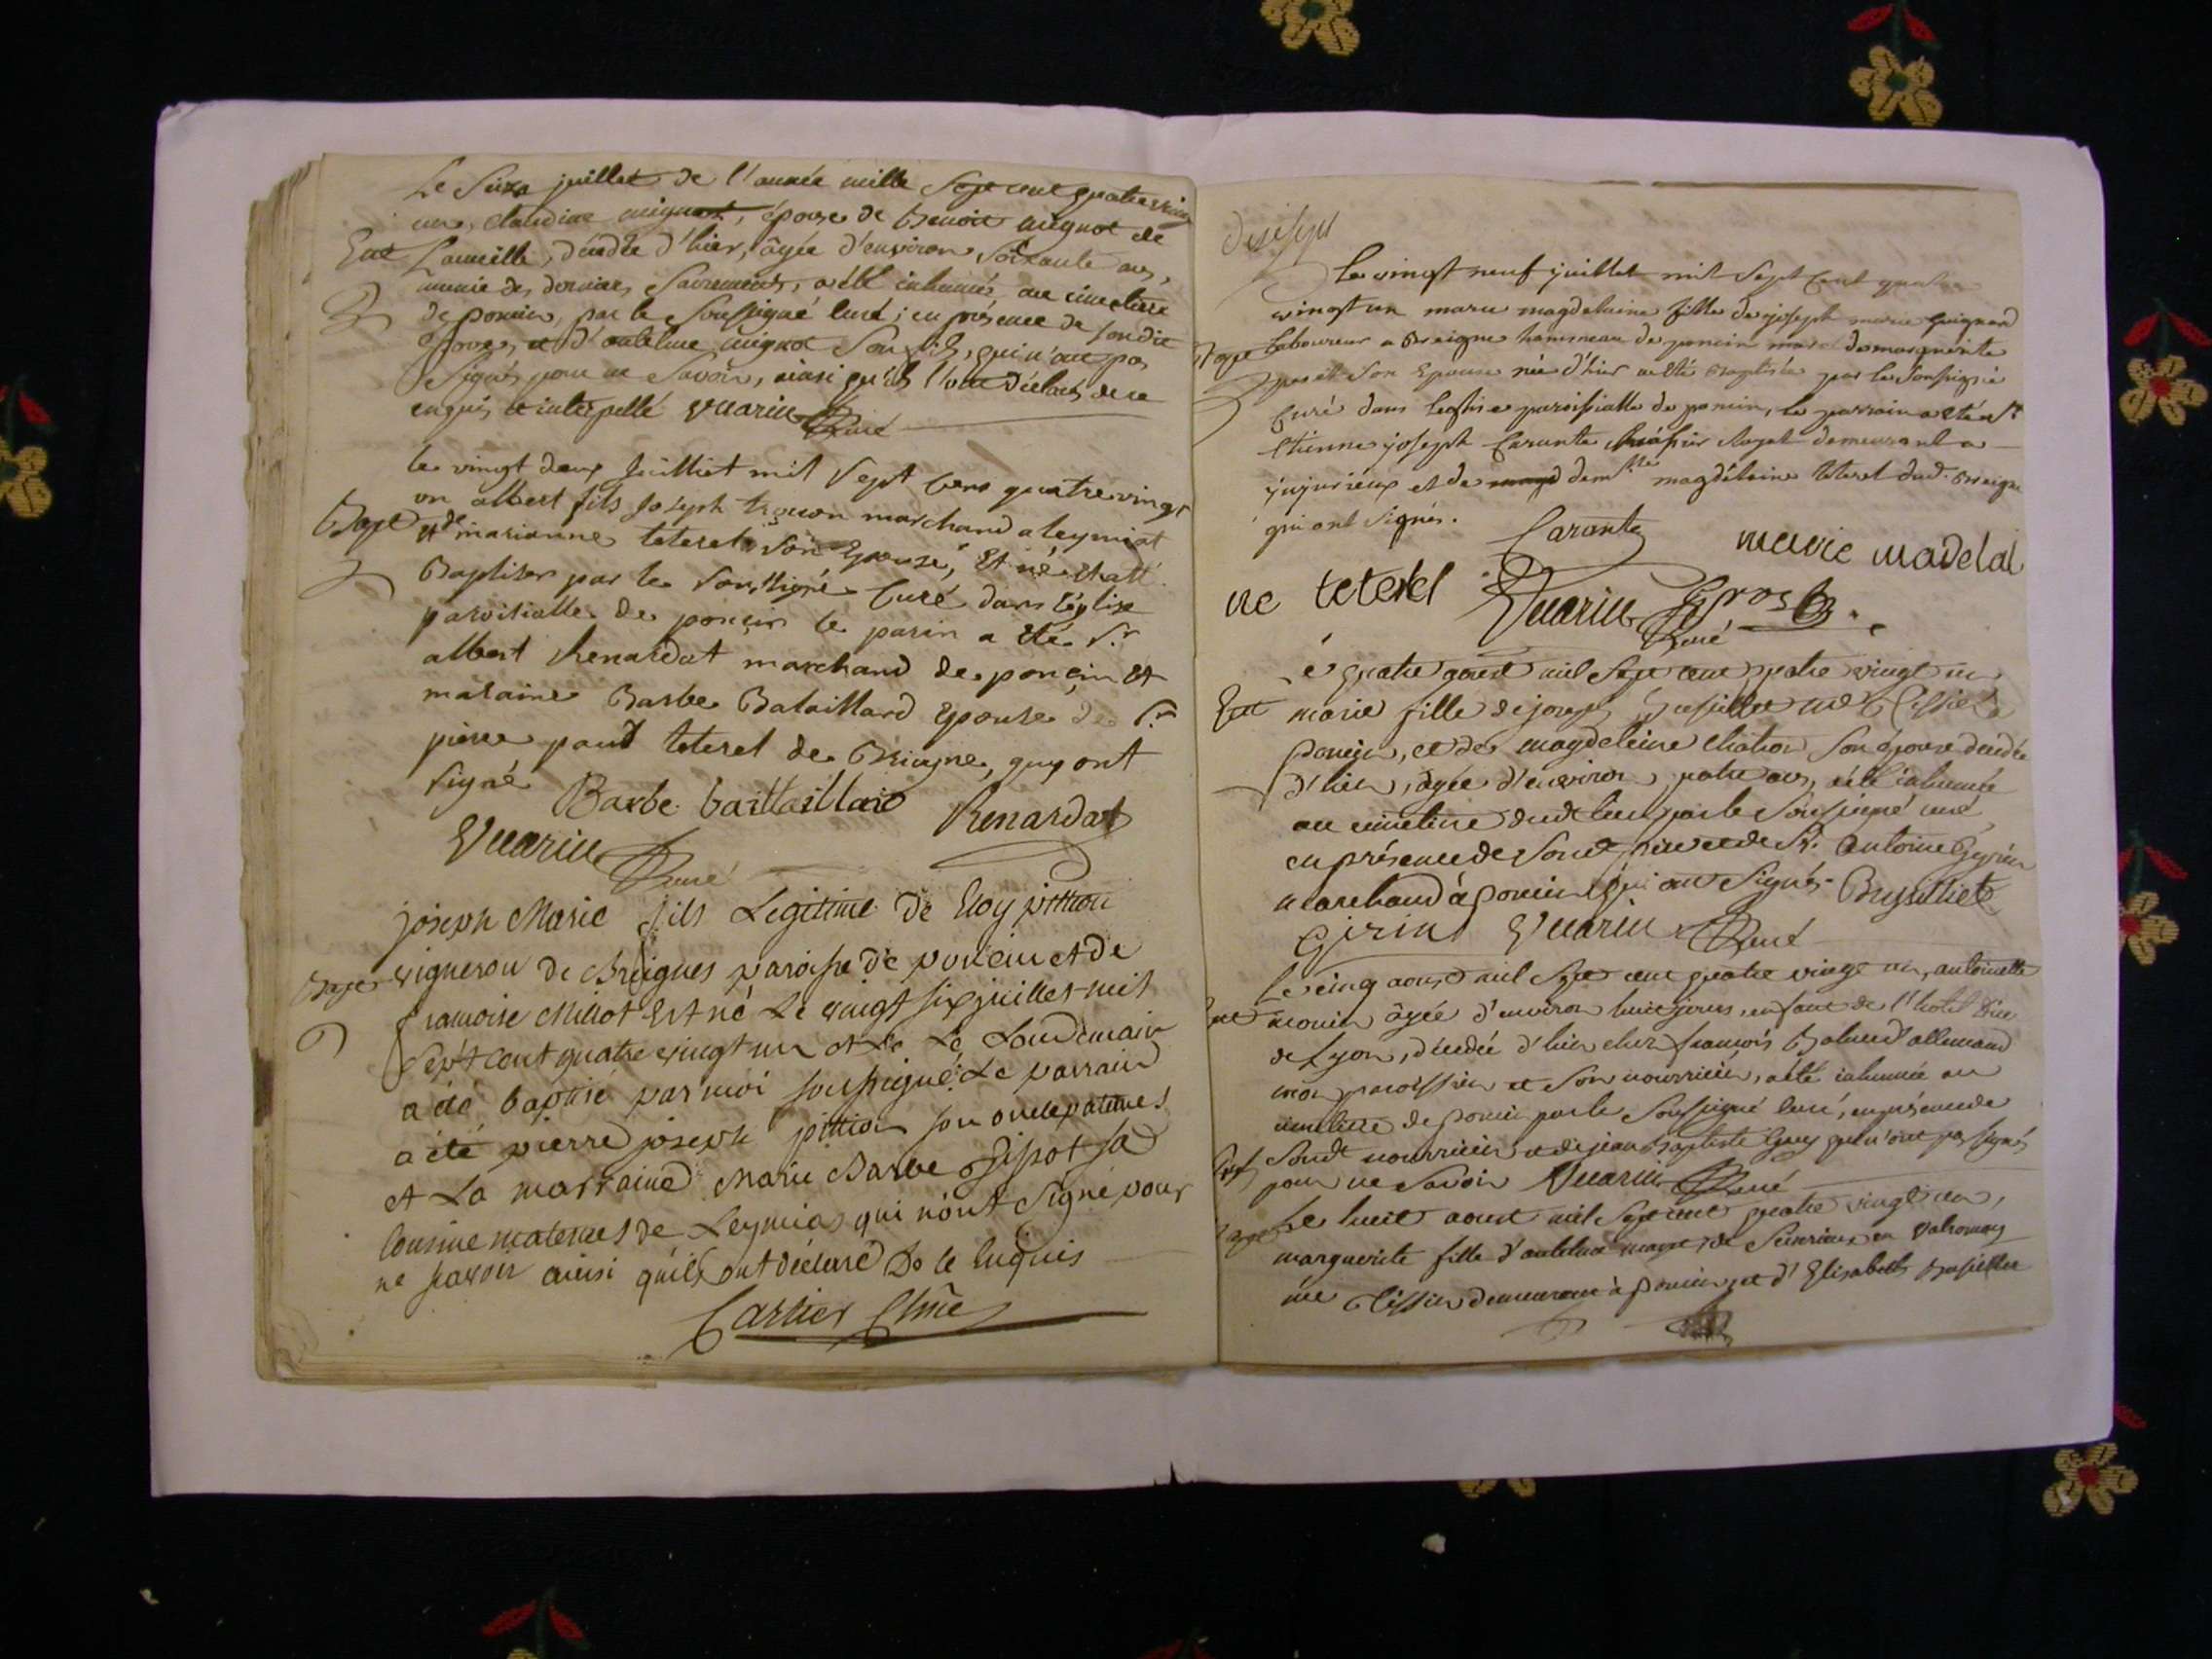 Le Seize juillet de l'année mille Sept cent quatre vingt
un, Claudine mignot, épouse de Benoit mignot de
Ent
décédée d'hier, âgée d'environ Soixante ans,
munie des derniers Sacremens, a été inhumée au cimetiere
de poncin, par le Soussigné curé; en présence de sondit
époux, et d'antelme mignot Son fils, qui n'ont pas
Signés pour ne Savoir, ainsi qu'ils l'ont déclaré de ce
enquis et interpellé Vuarin Curé
le vingt deux Juilliet mil Sept Cens quatre vingt
Bapt
un albert fils Joseph marchand a leymiat
et de marianne teterel Son Epouse, Et né Et a été
Baptiser par le Soussigné Curé dans l'église
paroisialle de poncin le parin a Eté Sr
albert Renardat marchand de poncin Et
maraine Barbe Bataillard Epouse de Sr
pierre paul teterel de Breigne, quy ont
signé
Barbe battaillard Renardat
Vuarin Curé
joseph Marie fils Legitime de Eloy pittion
Bapt
vigneron de Breignes paroisse de poncin et de
francoise Millot Est né Le vingt six juillet mil
Sept cent quatre vingt un et Le Le Landemain
a été baptisé par moi soussigné; Le parrain
a été pierre joseph pittion son oncle paternel
et La marraine Marie Barbe Sa
Cousine maternel de Leymia qui n'ont Signé pour
ne scavoir ainsi qu'ils ont déclaré De le Enquis
Carrier
dixsept
Le vingt neuf juillet mil Sept Cent quatre
vingt un marie magdelaine fille de joseph marie guignard
Bapt
Laboureur a Breigne hammeau de poncin de marguerite
Son Epouse née d'hier a été Baptisée par le Soussigné
Curé dans l'eglise paroissialle de poncin, le parrain a été Sr
Etienne joseph Carante huissier Royal demeurant a
jujurieux et de demlle magdelaine teterel dud. Breigne
qui ont signés.
Carante marie madelai
ne teterel Vuarin Curé Gros
Le quatre aoust mil Sept cent quatre vingt un
Ent
marie fille de joseph Brusilliet md à
poncin, et de magdeleine chation Son épouse décédée
d'hier, âgée d'environ quatre ans, a été inhumée
au cimetiere dudt lieu par le Soussigné curé
en présence de Sondt pere et de Sr. antoine Gyrin
marchand à poncin qui ont Signés Brusilliet
Girin Vuarin Curé
Le cinq aoust mil Sept cent quatre vingt un, antoinette
Ent
âgée d'environ huit jours, enfant de l'hotel Dieu
de Lyon, décédée d'hier chez françois allemand
mon paroissien et Son nourricier, a été inhumée au
cimetiere de poncin par le Soussigné Curé, en présence de
Sondt nourricier et de jean Baptiste Guy qui n'ont pas signés
pour ne Savoir Vuarin Curé
Le huit aoust mil Sept cent quatre vingt un,
Bapt
marguerite fille d'antelme de en valromey
demeurant à poncin, et d'Elisabeth